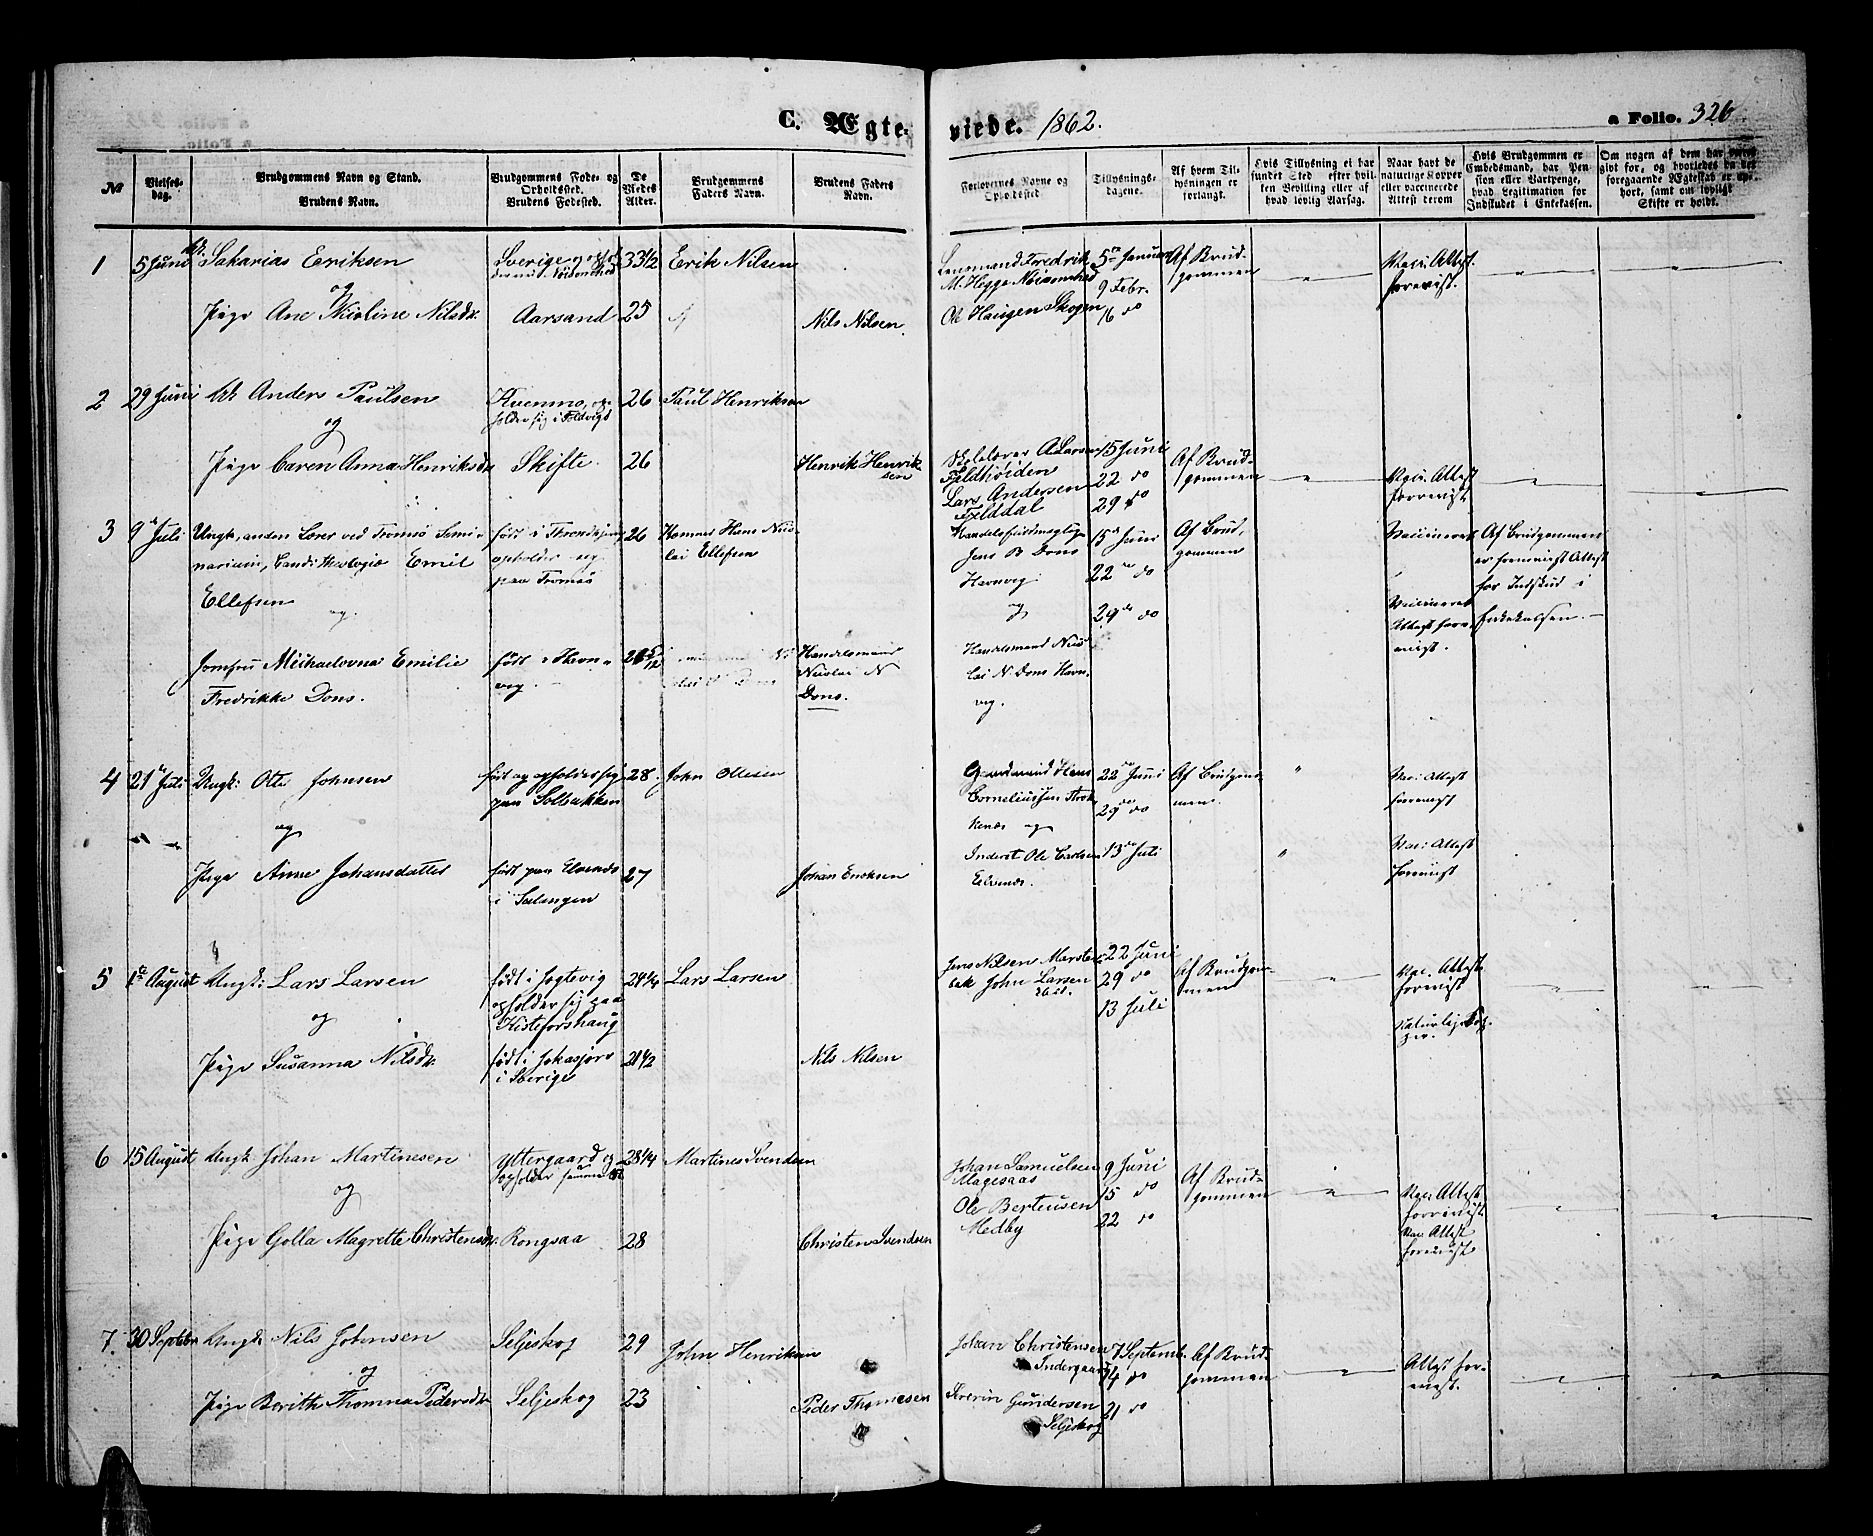 C. Ægte- viede. 1862.
a Folio. 326
№
Vielses-dag.
Brudgommens Navn og Stand.
Brudens Navn.
Brudgommens Føde- og Opholdssted.
Brudens Fødested.
De Viedes Alder.
Brudgommens Faders Navn.
Brudens Faders Navn.
Forlovernes Navne og Opholdssted
Tillysnings-dagene.
Af hvem Tillysningen er forlangt.
Hvis Tillysning ei har fundet Sted efter hvilken Bevilling eller af hvad lovlig Aarsag.
Naar havt de naturlige Kopper eller vaccinerede Attest derom
Hvis Brudgommen er Embedsmand, har Pension eller Vartpenge, hvad Legitimation for Indskudet i Enkekassen.
Om nogen af dem har været gift for, og hvorledes da det foregaaende Ægteskab er ophørt, samt om lovligt Skifte er holdt.
1 5 Juni Sakarias Eriksen
og
Sverige
33 1/2 Erik Nilsen
Pige Ane Nicoline Nilsdr. Aarsand 25 Nils Nilsen
Lensmand Fredrik
M. Hegge
Ole Haugen Skogen
5te Januar
9 Febr.
16 do
Af Brudgommen
Vacc. Attest forevist.
2 29 Juni Anders Paulsen
og
Kvenmo, opholder sig i Foldvigs
26 Paul Henriksen
Pige Caren Anna Henriksdr Skifte. 26 Henrik Henriksen
Skolelærer A Larsen
Fjeldhøiden
Lars Andersen
Fjelddal
15 Juni
22 do
29 do
Af Brudgommen
Vacc. Attest forevist.
3 9 Juli Ungk, anden Lærer ved Tromsø Semi-
narium, Candi theologiæ Emil
Ellefsen
og
født i Throndhjem opholder sig paa Tromsø
26 Hans Nicolai Ellefsen
Jomfru Michaelovna Emilie
Fredrikke Dons.
født i Havnvig.
Handelsmand Nicolai N Dons.
Handelsfuldmægtig
Jens B Dons
Havnvig
og
Handelsmand Nicolai N. Dons Havnvig.
15 Juni
22 do
29 do
Af Brudgommen
Vaccineret
Vaccineret Attest forevist.
Af Brudgommen er forevist Attest for Indskud i Enkekassen.
4 21 Juli Ungk: Ole Johnsen
og
født og opholder sig paa Solbakken
28. John Olesen
Pige Anne Johansdatter
født paa Elvenes i Salangen
27 Johan Enoksen
Gaardmand Hans
Corneliussen
og
Inderst Ole Carlsen
Elvenæs.
22 Juni
29 do
13 Juli
Af Brudgommen.
Vacc. Attest forevist
Vacc. Attest forevist
5 1ste August Ungk: Lars Larsen
og
født i Jogtevig opholder sig paa Kisteforshaug
24 1/4 Lars Larsen
Pige Susanna Nilsdr.
født i Jokasjerv i Sverige
21 1/2 Nils Nilsen
Jens Nilsen
John Larsen
22 Juni
29 do
13 Juli
Af Brudgommen
Vac. Attest forevist
Naturlige Kopper.
6 15 August Ungk: Johan Martinesen
og
Yttergaard og opholder samme St
28 1/4 Martines Svendsen
Pige Golla Magrette Christensdr. Rongsaa 28 Christen Svendsen
Johan Samuelsen
Magesaas
Ole Berteusen
Medby
9 Juni
15 do
22 do
Af Brudgommen
Vac. Attest forevist.
Vac. Attest forevist.
7. 30 Septbr Ungk: Nils Johnsen
og
Seljeskog 29 John Henriksen
Pige Berith Thomna Pedersdr. Seljeskog 23 Peder Thomesen
Johan Christensen
Indergaard
Severin Gundersen
Seljeskog
7 Septemb.
14 do
21 do
Af Brudgommen
Attest forevist.